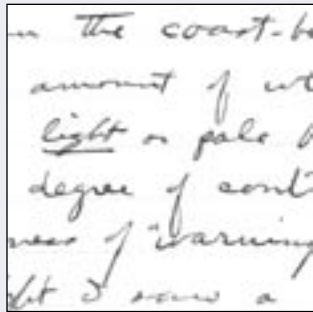 the coast-b
amount of
light or pale
degree of cont
ness of "warning
ght I saw a